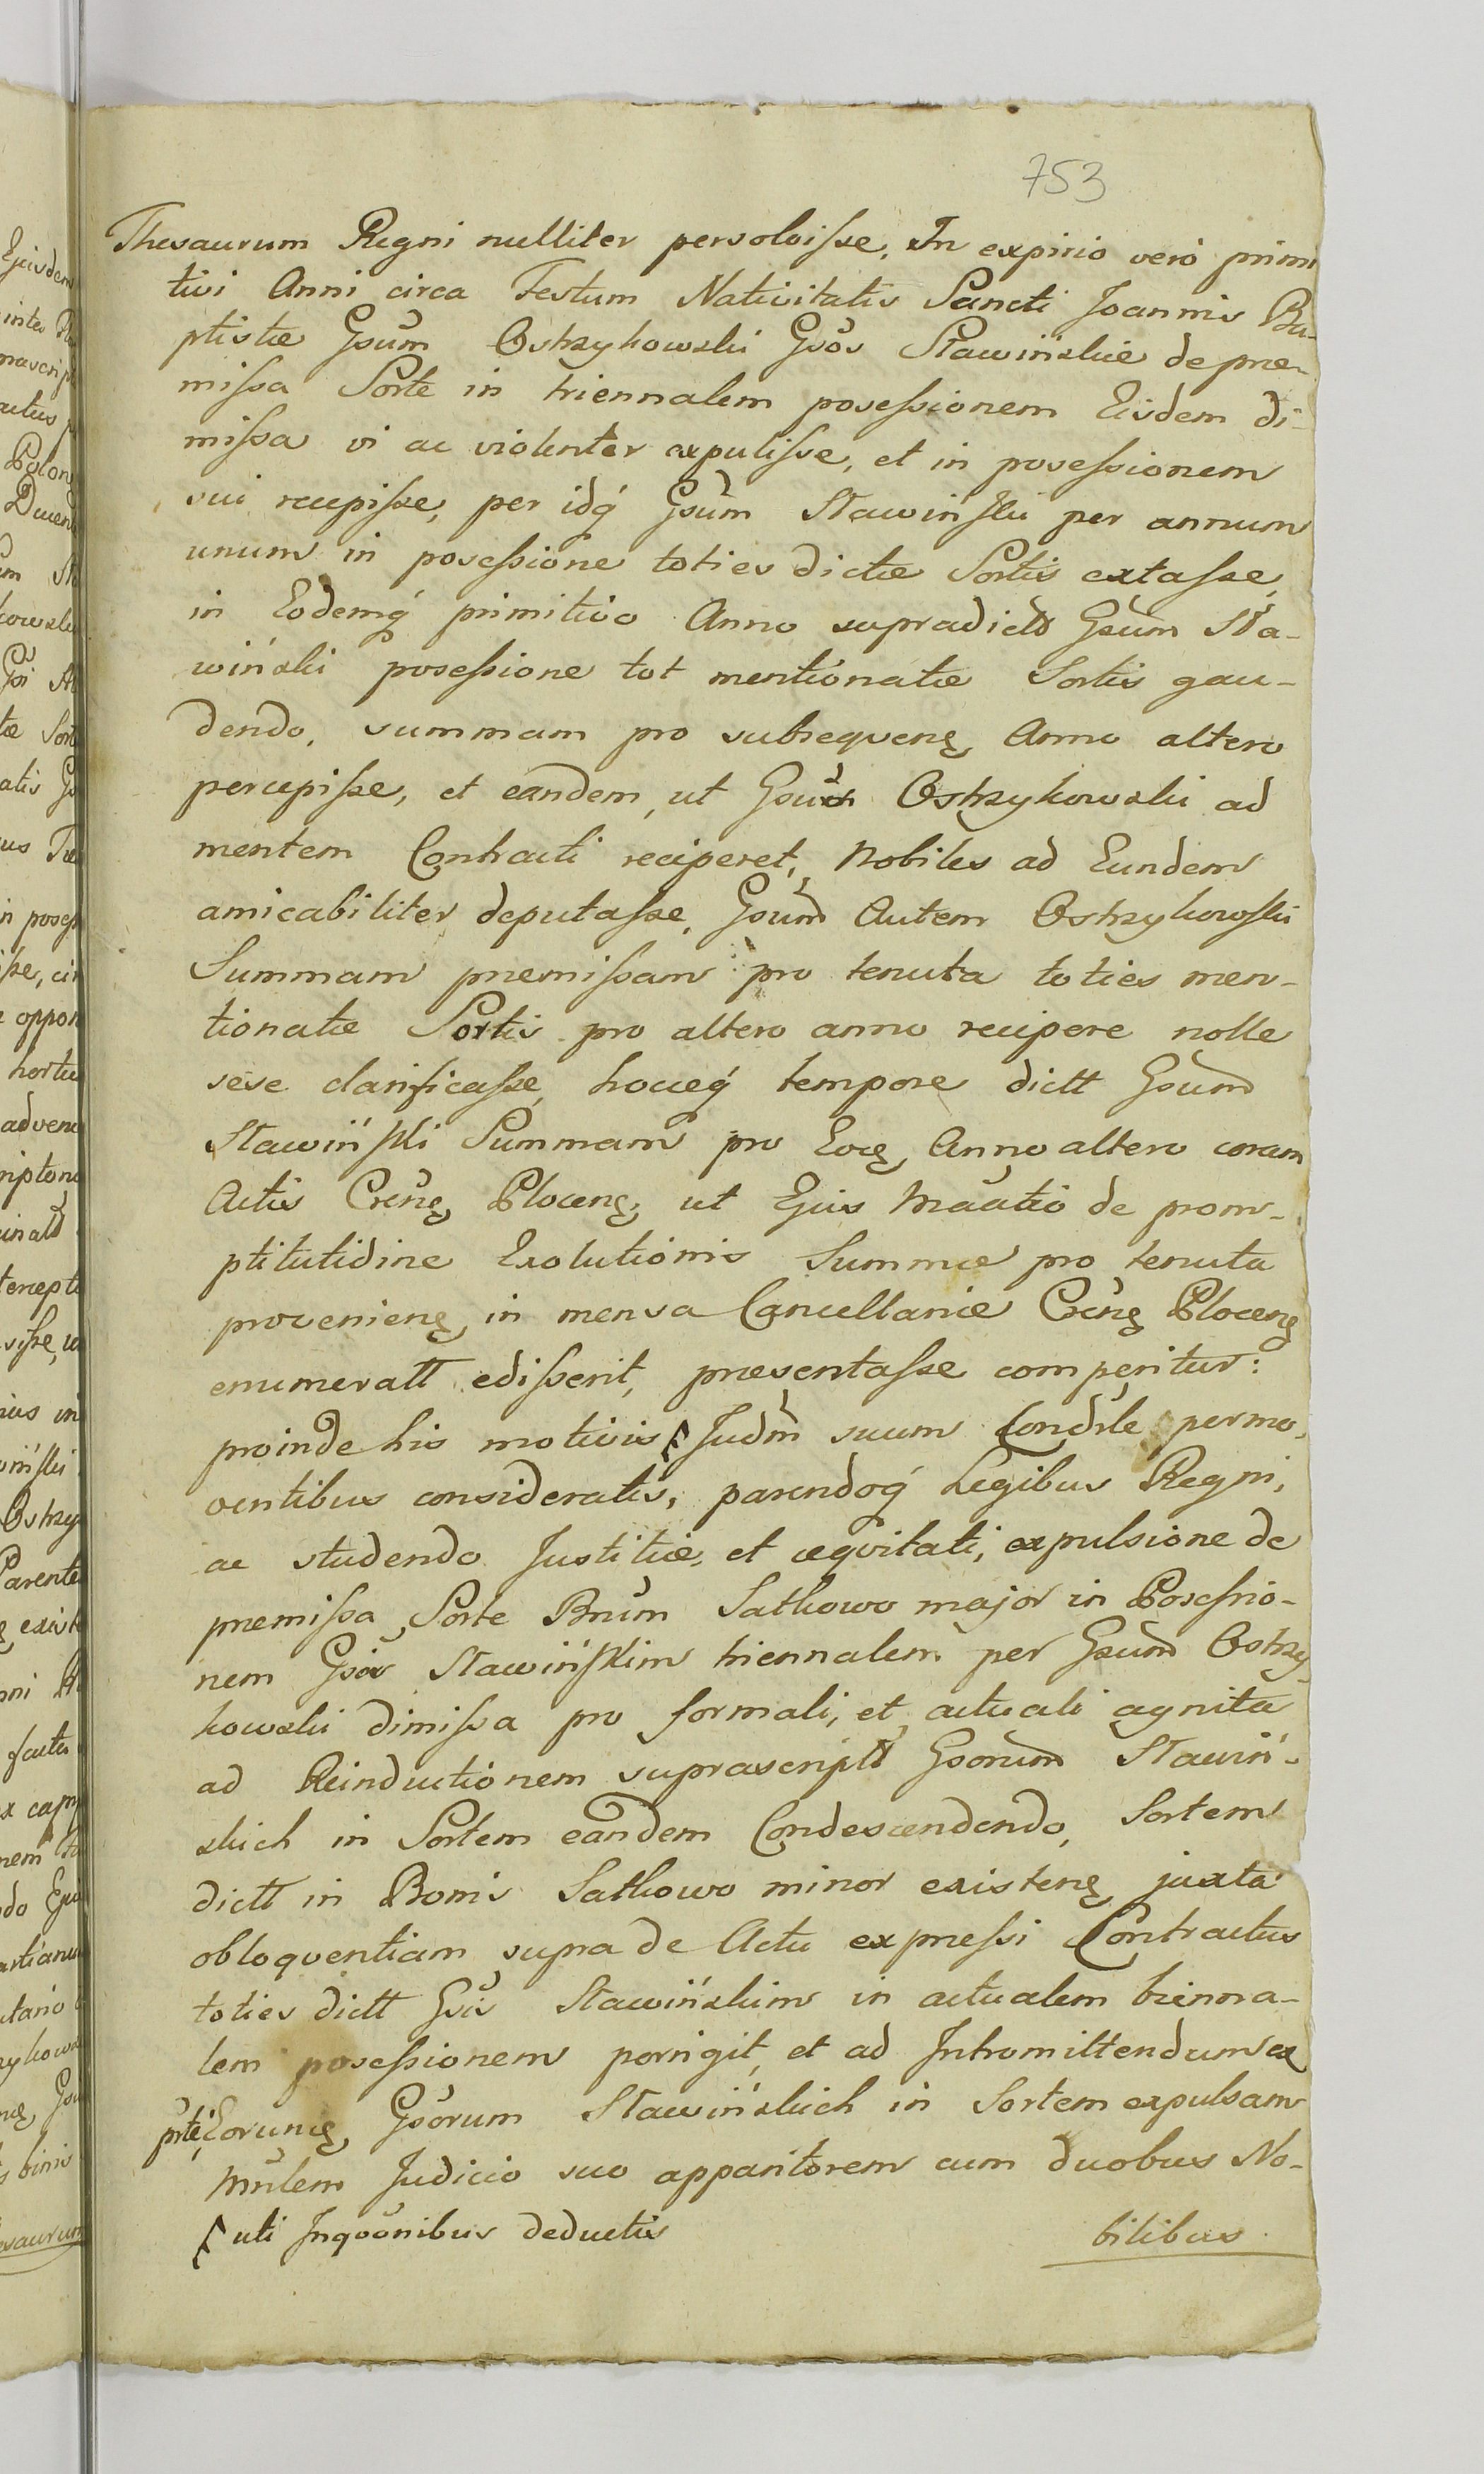 753
Thesaurum Regni nulliter persolvisse, In expirio vero primi
tivi Anni circa Festum Nativitatis Sancti Joannis Ba-
ptistæ Gsum Ostrzykowski Gsos Stawinskie de præ-
missa Sorte in triennalem possessionem Eisdem di-
missa vi ac violenter expulisse, et in posessionem
sui recepisse, per idq Gsum Stawinski per annum
unum in posessione toties dictæ Sortis extasse,
in Eodemq primitivo Anno supradictt Gsum Sta-
winski posessione tot mentionatæ Sortis gau-
dendo, summam pro subseqveng Anno altero
percepisse, et eandem, ut Gsum Ostrzykowski ad
mentem Contracti reciperet, Nobiles ad Eundem
amicabiliter deputasse, Gsum Autem Ostrzykowski
Summam premissam pro tenuta toties men-
tionatæ Sortis pro altero anno recipere nolle
sese clarificasse, hoceq tempore dictt Gsum
Stawinski Summam pro Eoq Anno altero coram
Actis Creng Ploceng, ut Ejus Maatio de prom-
ptitutidine Exolutionis Summæ pro tenuta
provenieng in mensa Cancellariæ Creng Ploceng
enumeratt edisserit, presentasse comperitur:
proinde his motivis Judm suum Condrle permo,
ventibus consideratis, parendoq Legibus Regni,
ac studendo Justitiæ, et æqvitati, expulsione de
premissa Sorte Bnum Satkowo major in Posessio-
nem Gsor Stawinskim triennalem per Gsum Ostrzy
kowski dimissa pro formali, et actuali agnita
ad Reinductionem suprascriptt Gsorum Stawin-
skich in Sortem eandem Condescendendo, Sortem
dictt in Bonis Satkowo minor existeng juxta
obloqventiam supra de Actu expressi Contractus
toties dictt Gsis Stawinskim in actualem trienna-
lem posessionem porrigit, et ad Intromittendum ex
prte, Eorumq Gsorum Stawinskich in Sortem expulsam
Mnlem Judicio suo apparitorem cum duobus No-
uti Inqoonibus deductis
bilibus